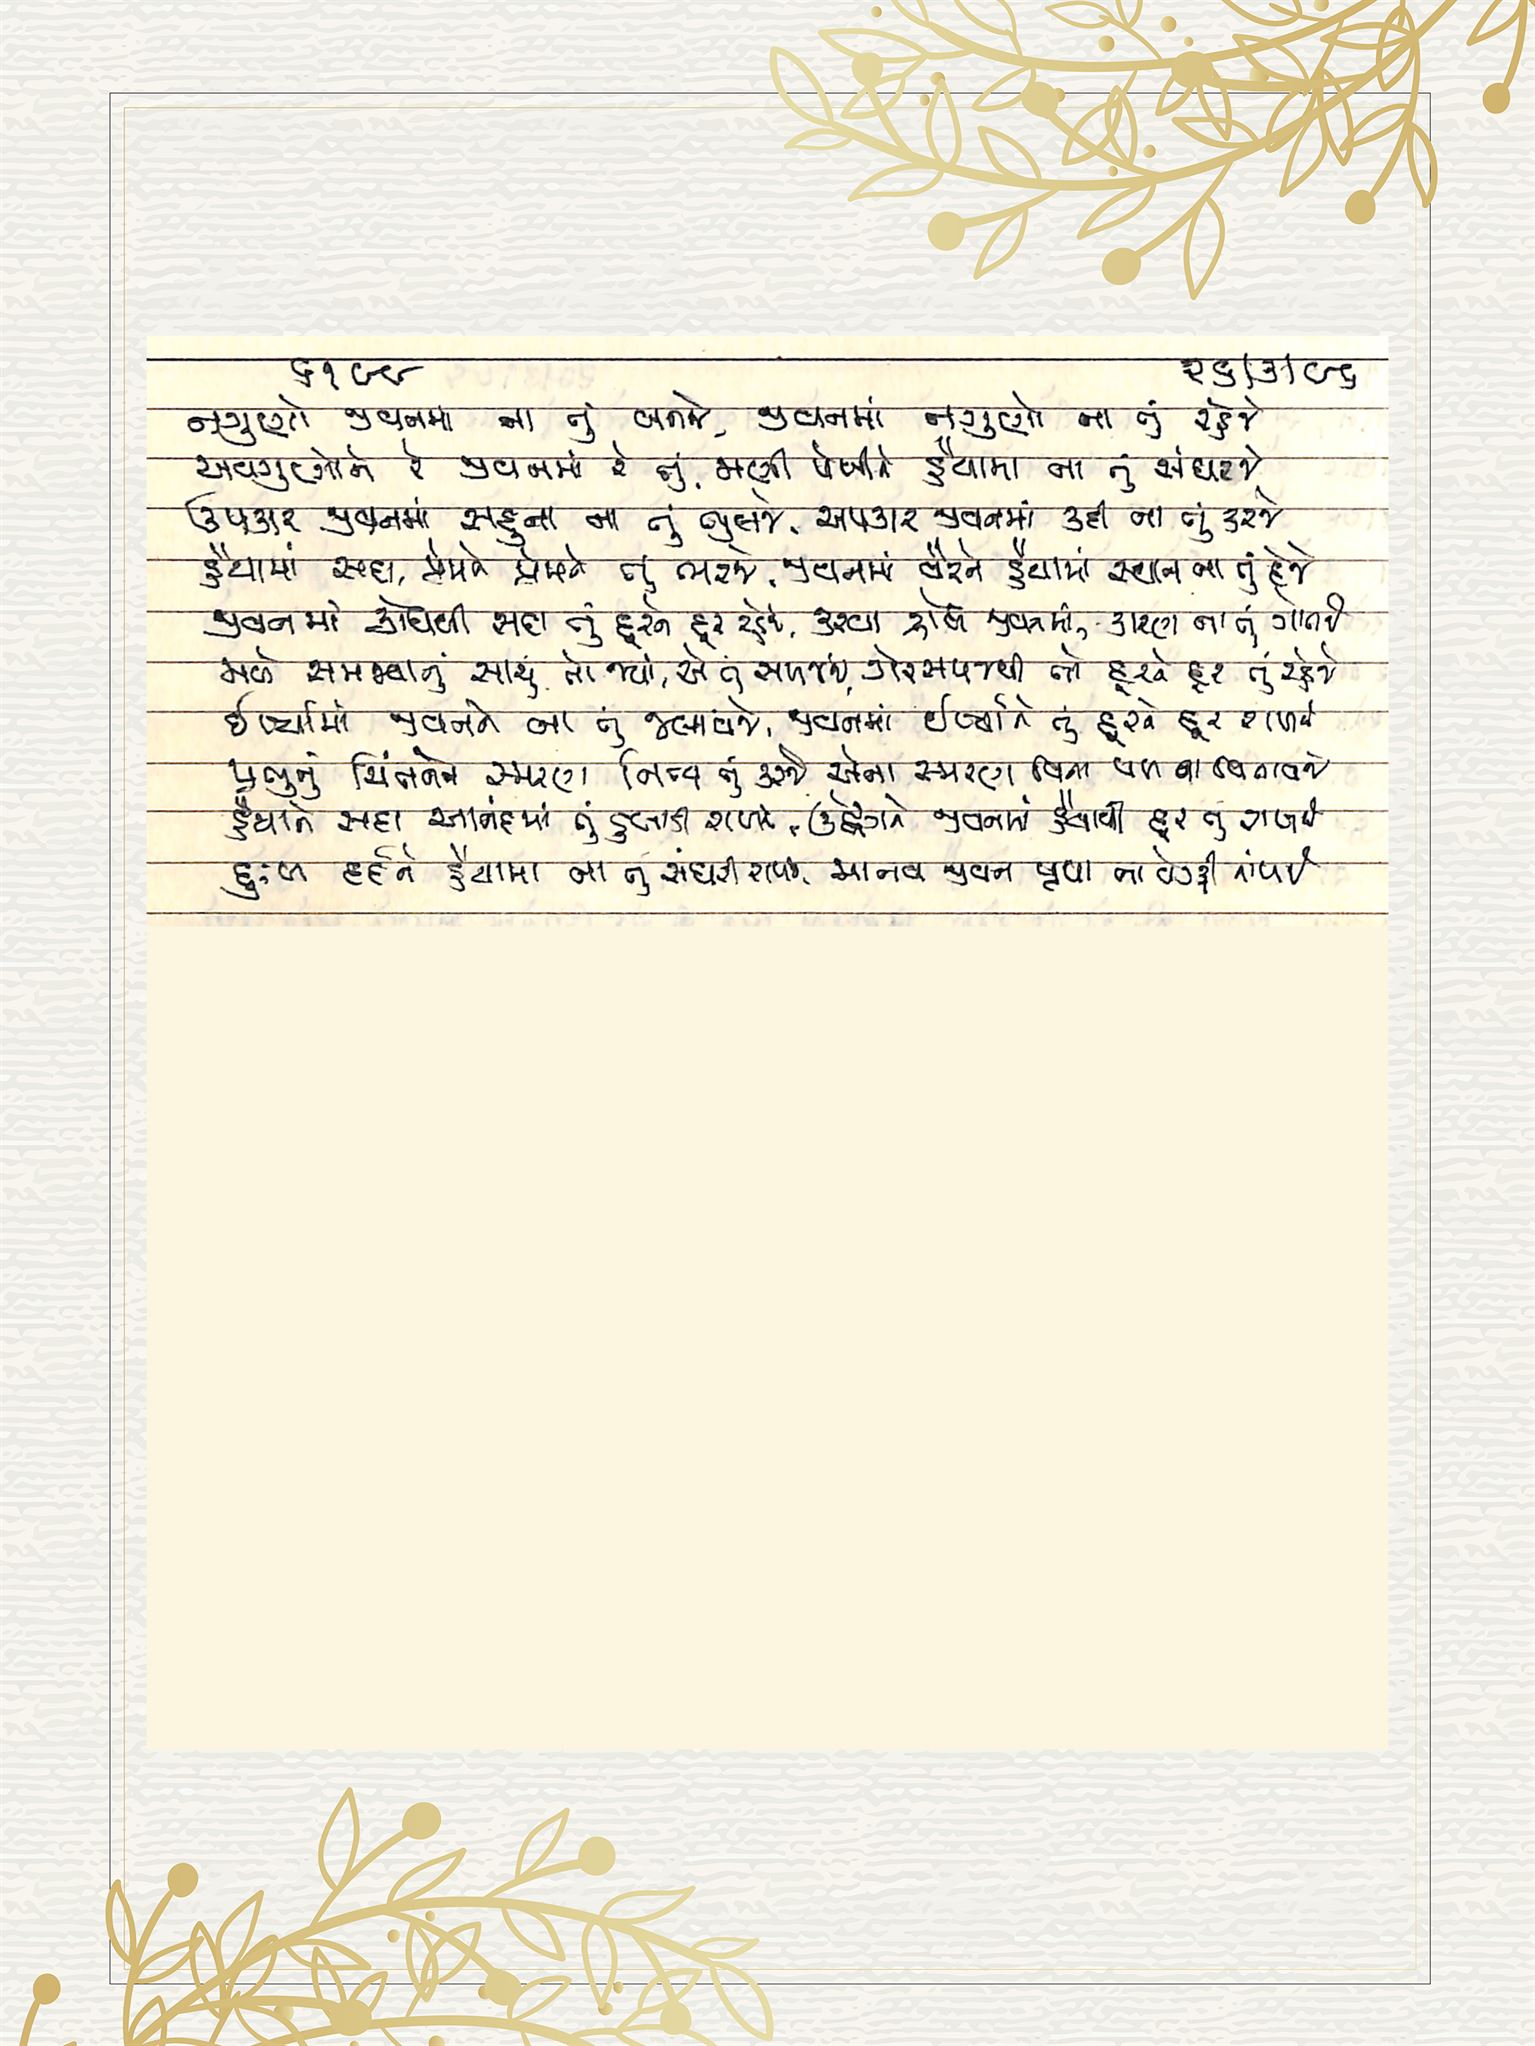 ૬૧૯૯ ૨૬/૩/૯૬
નગુણો જીવનમાં ના તું બનજે, જીવનમાં નગુણો ના તું રહેજે
અવગુણોને રે જીવનમાં રે તું, મણી હૈયામા ના તું સંઘરજે
ઉપકાર જીવનમાં સહુના ના તું ભુલજે, અપકાર જીવનમાં કદી ના તું કરજે
હૈયામાં સદા, પ્રેમને પ્રેમને તું ભરજે, જીવનમાં વૈરને હૈયામાં સ્થાન ના તું દેજે
જીવનમાં ક્રોધથી સદા તું દૂરને દૂર રહેજે, કરવા ક્રોધ જીવનમાં, કારણ ના તું ગોતજે
મળે સમજવાનું સાચું તો જ્યાં, એ તું સમજજે, ગેરસમજથી તો દૂરને દૂર તું રહેજે
ઈર્ષ્યામાં જીવનને ના તું જલાવજે, જીવનમાં ઈર્ષ્યાને તું દૂરને દૂર રાખજે
પ્રભુનું ચિંતનને સ્મરણ નિત્ય તું કરજે એના સ્મરણ વિના પળ ના વિતાવજે
હૈયાને સદા આનંદમાં તું ડુબાડી રાખજે, ઉદ્વેગને જીવનમાં હૈયાથી દૂર તું રાખજે
દુઃખ દર્દને હૈયામા ના તું સંઘરી રાખજે, માનવ જીવન વૃથા ના વેડફી નાંખજે